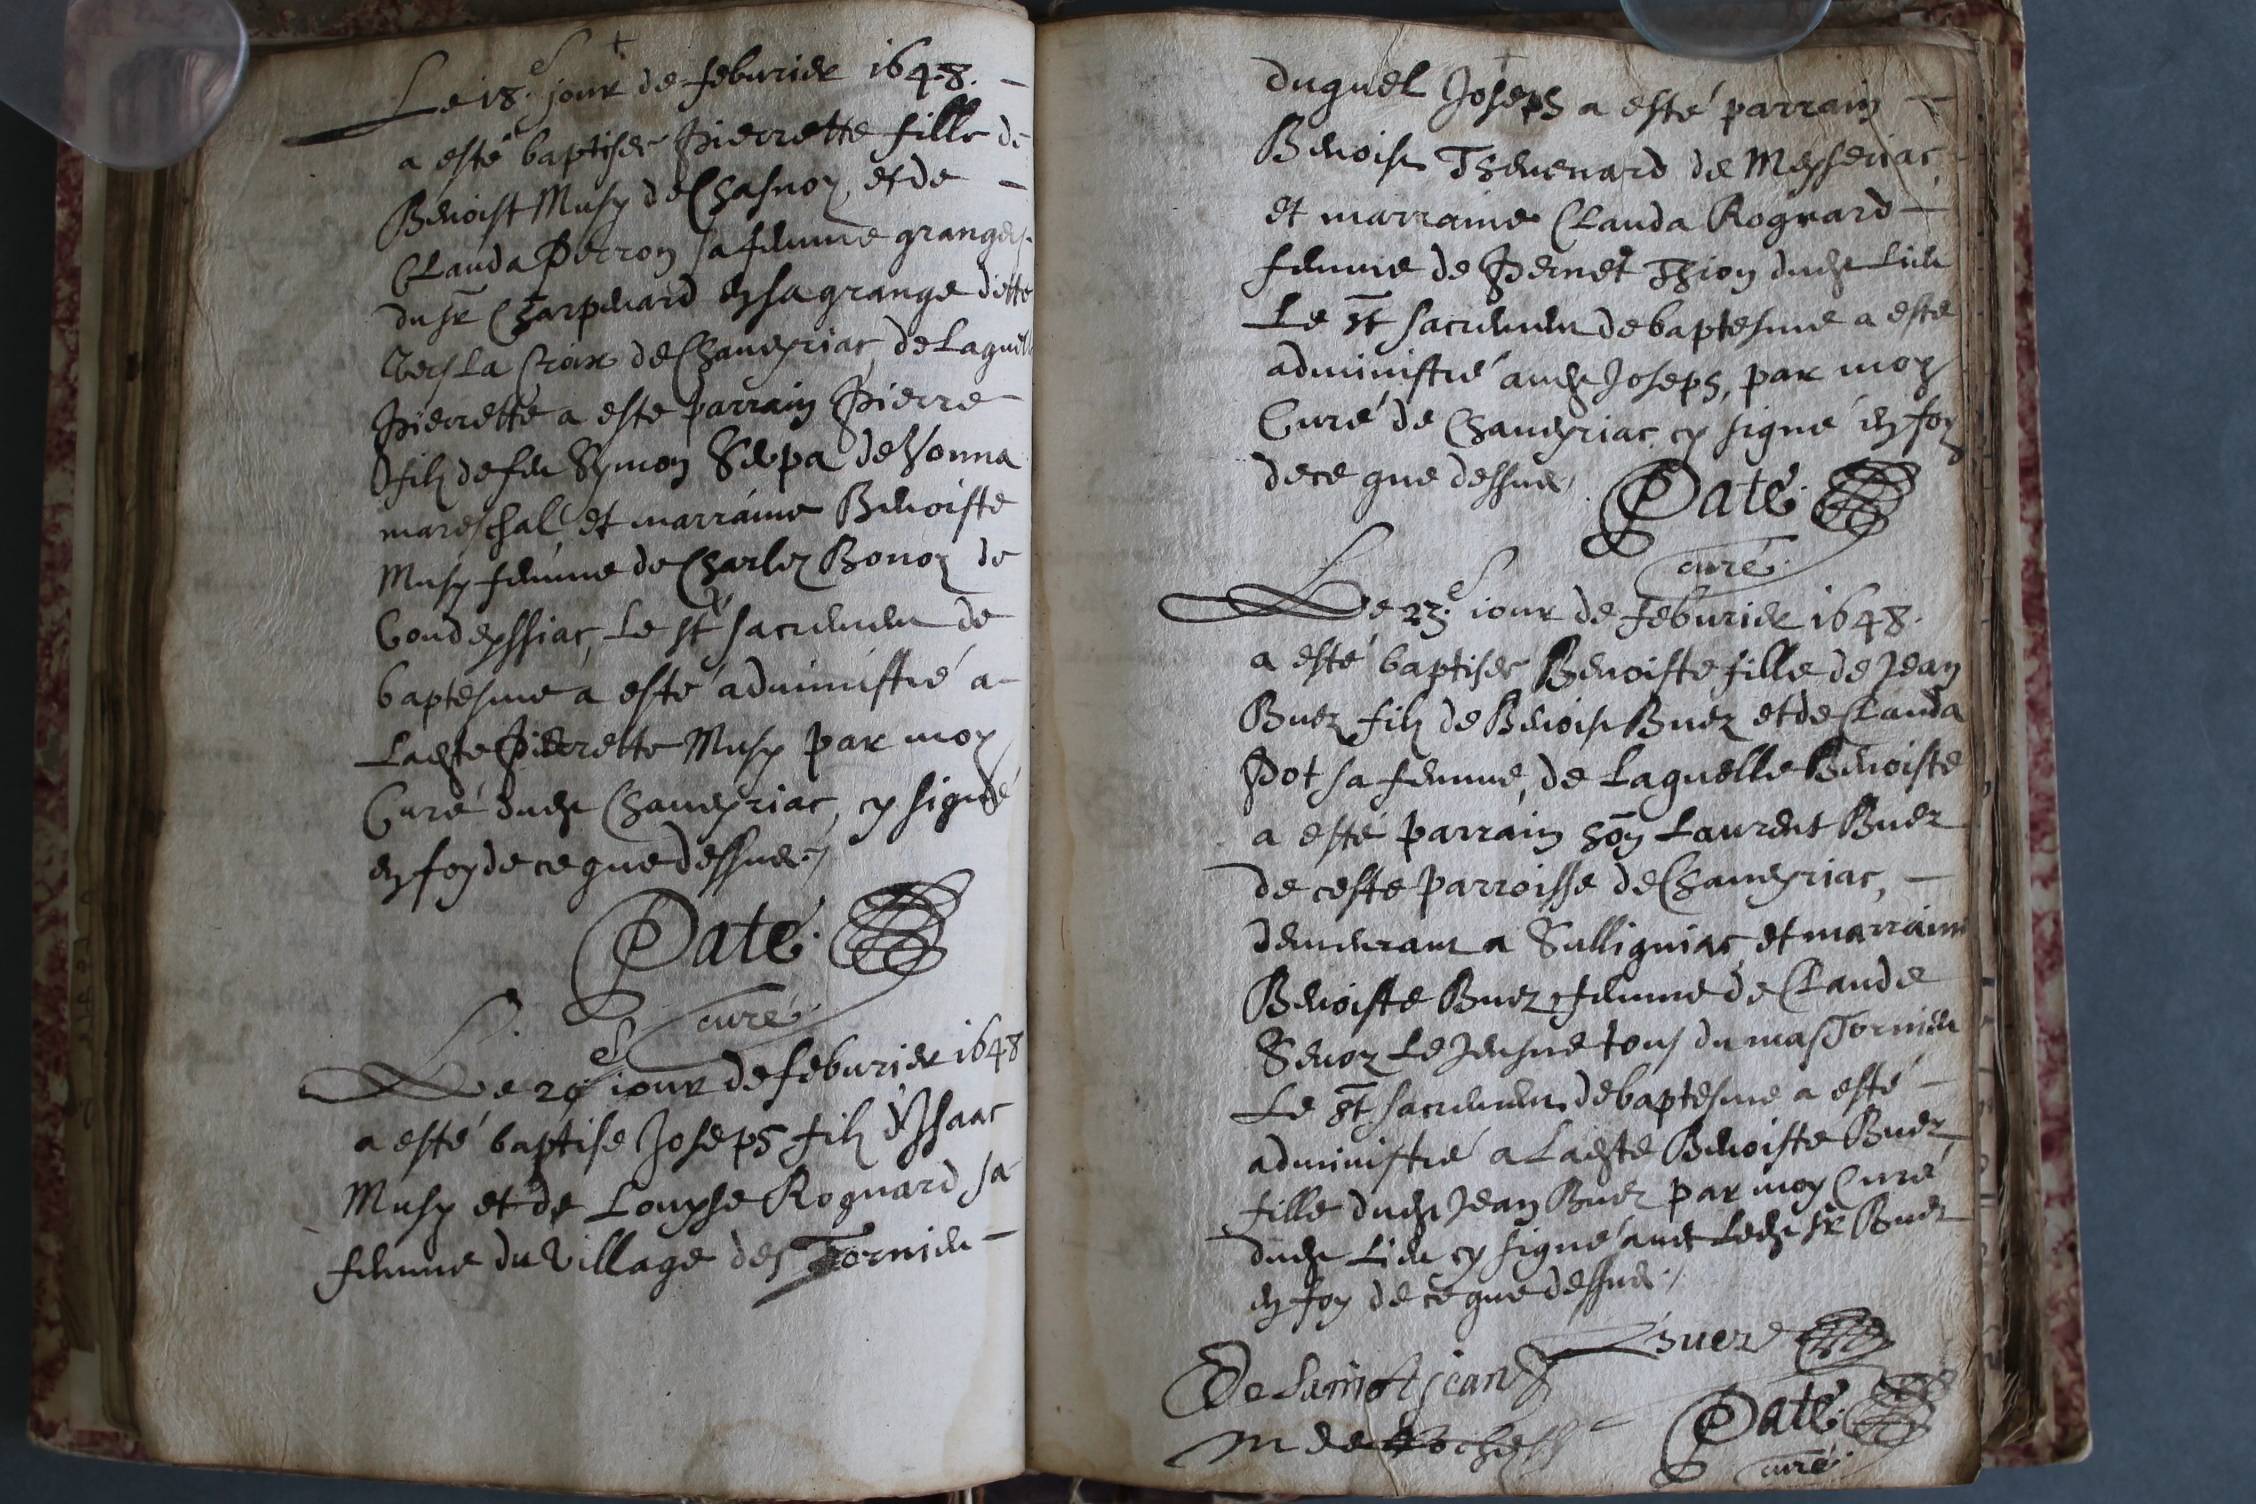 Le 18.e jour de feburier 1648. –
a esté baptisee Pierrette fille de
Benoist Musy de Chasnoy, et de –
Clauda Perron sa femme grangers
du sr Charpenard en sa grange ditte
vers La Croix de Chaneyriac, de Laquelle
Pierrette a este parrain Pierre
filz de feu Symon Seepa de Vonna
mareschal, et marraine Benoiste
Musy femme de Charles Bonoz de
Condeyssiac, Le st sacrement de
baptesme a esté administré a –
Ladte Pierrette Musy par moy
Curé dudt Chaneyriac, cy signé
en foy de ce que dessus./
Paté.
curé
Le 20e jour de feburier 1648
a esté baptise Joseph filz d'Yssaac
Musy et de Louyse Rognard sa
femme du Village des Tornieu –
duquel Joseph a esté parrain –
Benoist Thevenard de Meysseriac,
et marraine Clauda Rognard –
femme de Pernet Thion dudt Lieu
Le st sacrement de baptesme a este
administré audt Joseph, par moy
Curé de Chaneyriac, cy signé en foy
de ce que dessus./
Paté.
curé.
Le 23.e iour de feburier 1648.
a esté baptisee Benoiste fille de Jean
Buez filz de Benoist Buez et de Clauda
Pot sa femme, de Laquelle Benoiste
a esté parrain hon Laurent Buez
de ceste parroisse de Chaneyriac, –
demeurant a Sulligniac, et marraine
Benoiste Buez femme de Claude
Sevoz Le Jeusne tous du mas Tornieu
Le st sacrement de baptesme a esté –
administré a Ladte Benoiste Buez
fille dudt Jean Buez par moy Curé
dudt Lieu cy signé avec Ledt sr Buez
en foy de ce que dessus./
Buez
De Sainct jean
M de Roches
Paté.
curé.